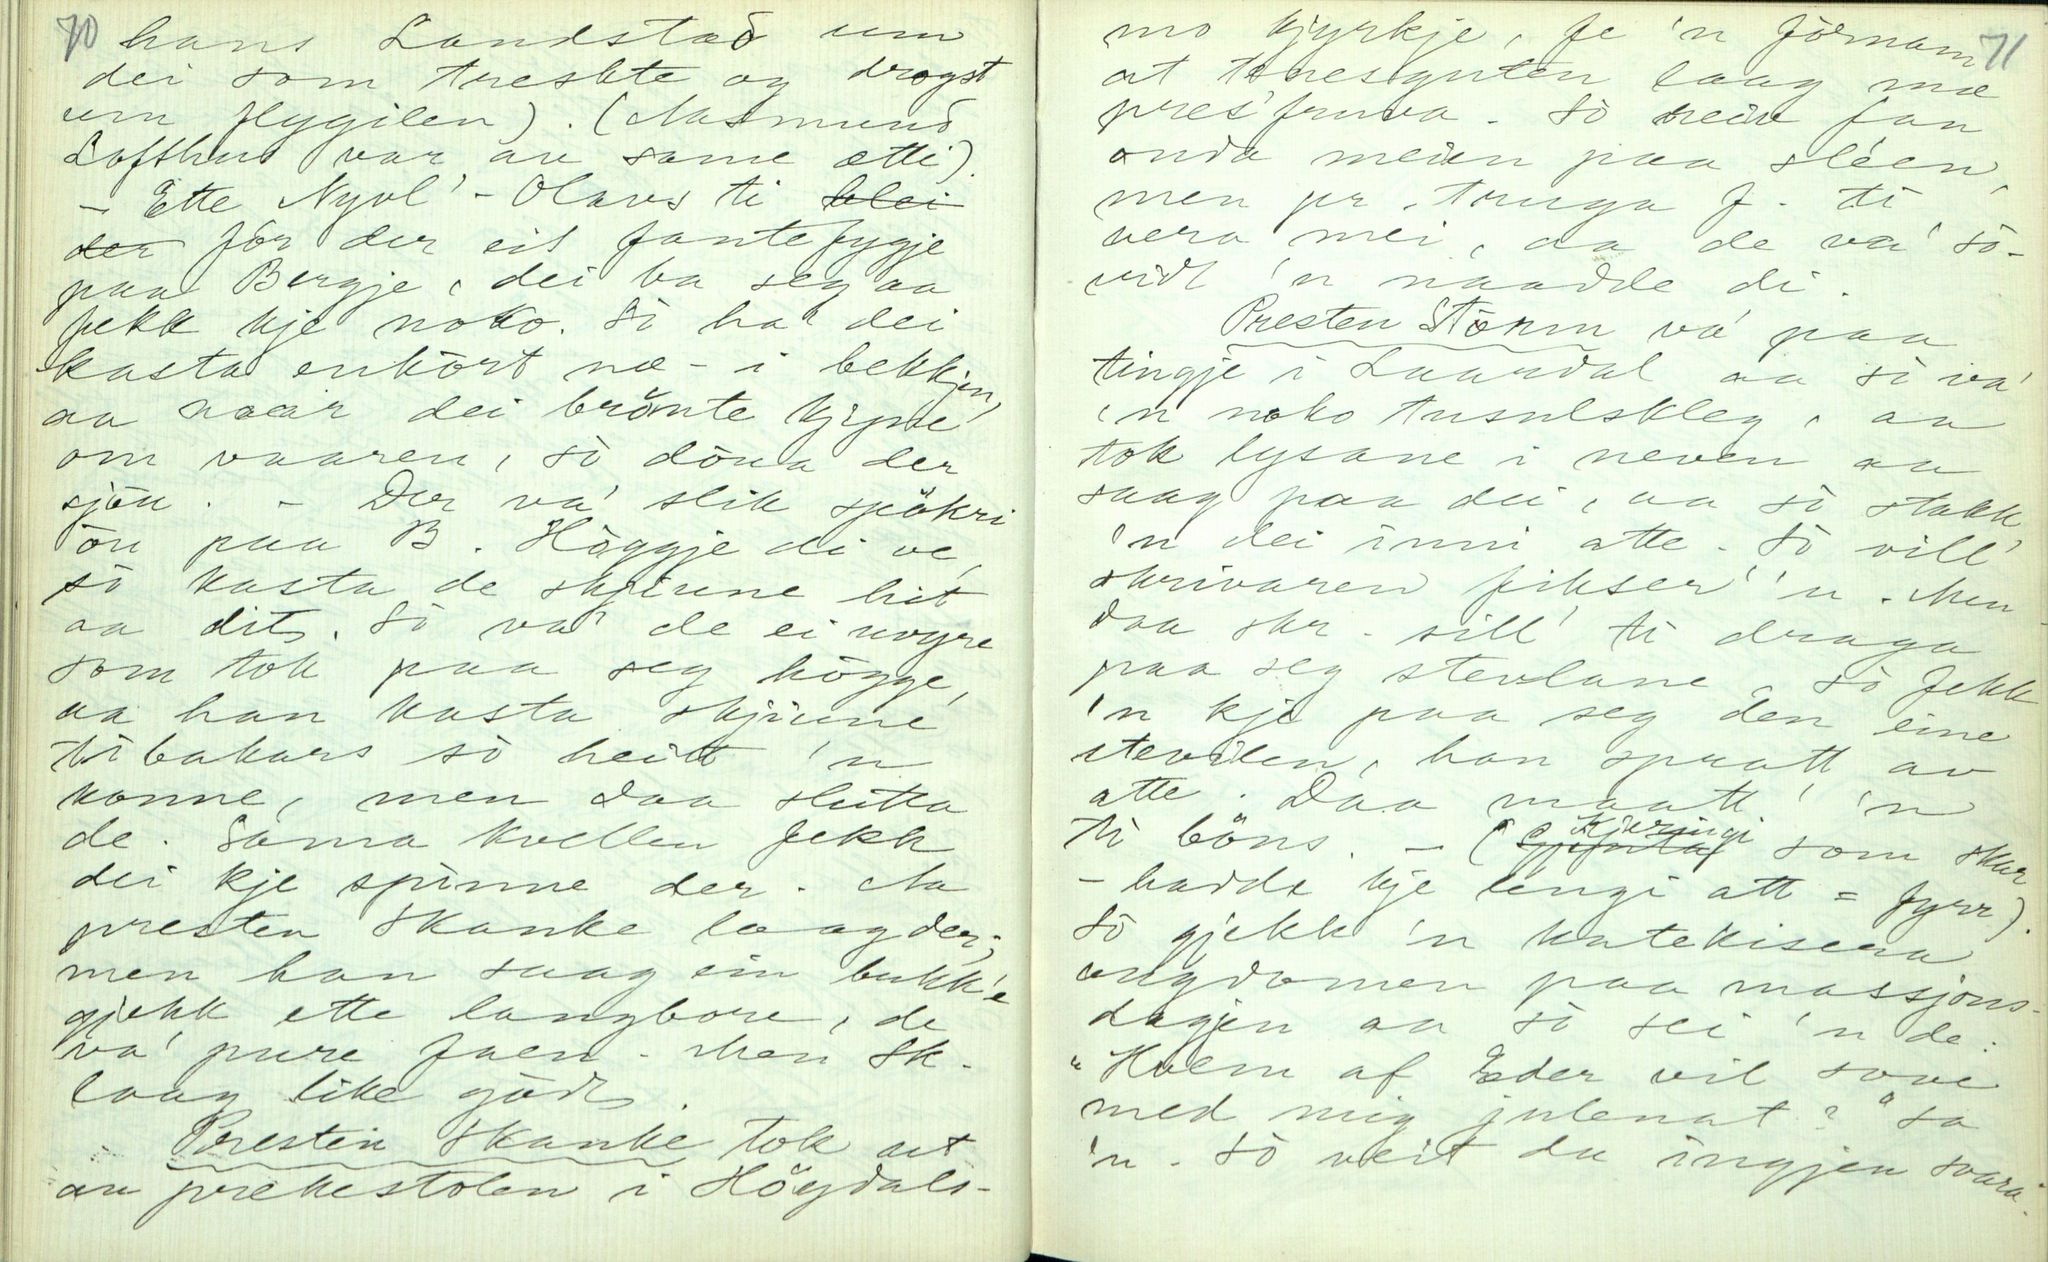 70
hans Landstad um
dei som treskte og drogst
um flygilen). (Aasmund
Lofthus var av same ætti).
- Ette Nyvl'-Olavs ti blei
der fór der eit fantefygje
paa Bergje, dei ba seg aa
fekk kje noko. Sò ha' dei
kasta enkórt næ - i bekkjen,
aa naar dei brönte kjyne
om vaaren, sò döua der
sjöu. - Der va' slik spökri
öu paa B. Höggje di ve,
sò kasta de skjinne hit
aa dit. Sò va' de ei
som tok paa seg högge,
aa han kasta skjinne
tibakars sò heitt 'n
konne, men daa slutta
de. Sama kvellen fekk
dei kje spinne der. Aa
presten Skanke laag der;
men han saag ein bukk'e
gjekk ette langbore, de
va' pure faen. Men Sk.
laag like gödt.
Presten Skanke tok ut
av prekestolen i Höydals-
71
mo kjyrkje, fe 'n fórnam
at tenesguten laag mæ
pres'fruva. Sò reiv fan
onda meien paa sléen,
men pr. truga f. ti
vera mei, aa de va' sò-
vidt 'n naadde di.
Presten Storm va' paa
tingje i Laardal aa sò va'
'n noko tusulskleg, aa
tok lysane i neven aa
saag paa dei, aa sò stakk
'n dei inni atte. Sò vill'
skrivaren fikser' 'n. Men
daa skr. sill' ti draga
paa seg stevlane, sò fekk
'n kje paa seg den eine
stevilen, han spratt av
atte. Daa maatt' 'n
ti böns. - ( kjeringi som skar
- hadde kje lengi att = fyrr).
Sò gjekk 'n katekisera
ungdomen paa massjons-
dagjen aa sò sei 'n de:
"Hvem af Eder vil sove
med mig julenat?" sa
'n. Sò veit du ingjen svara.